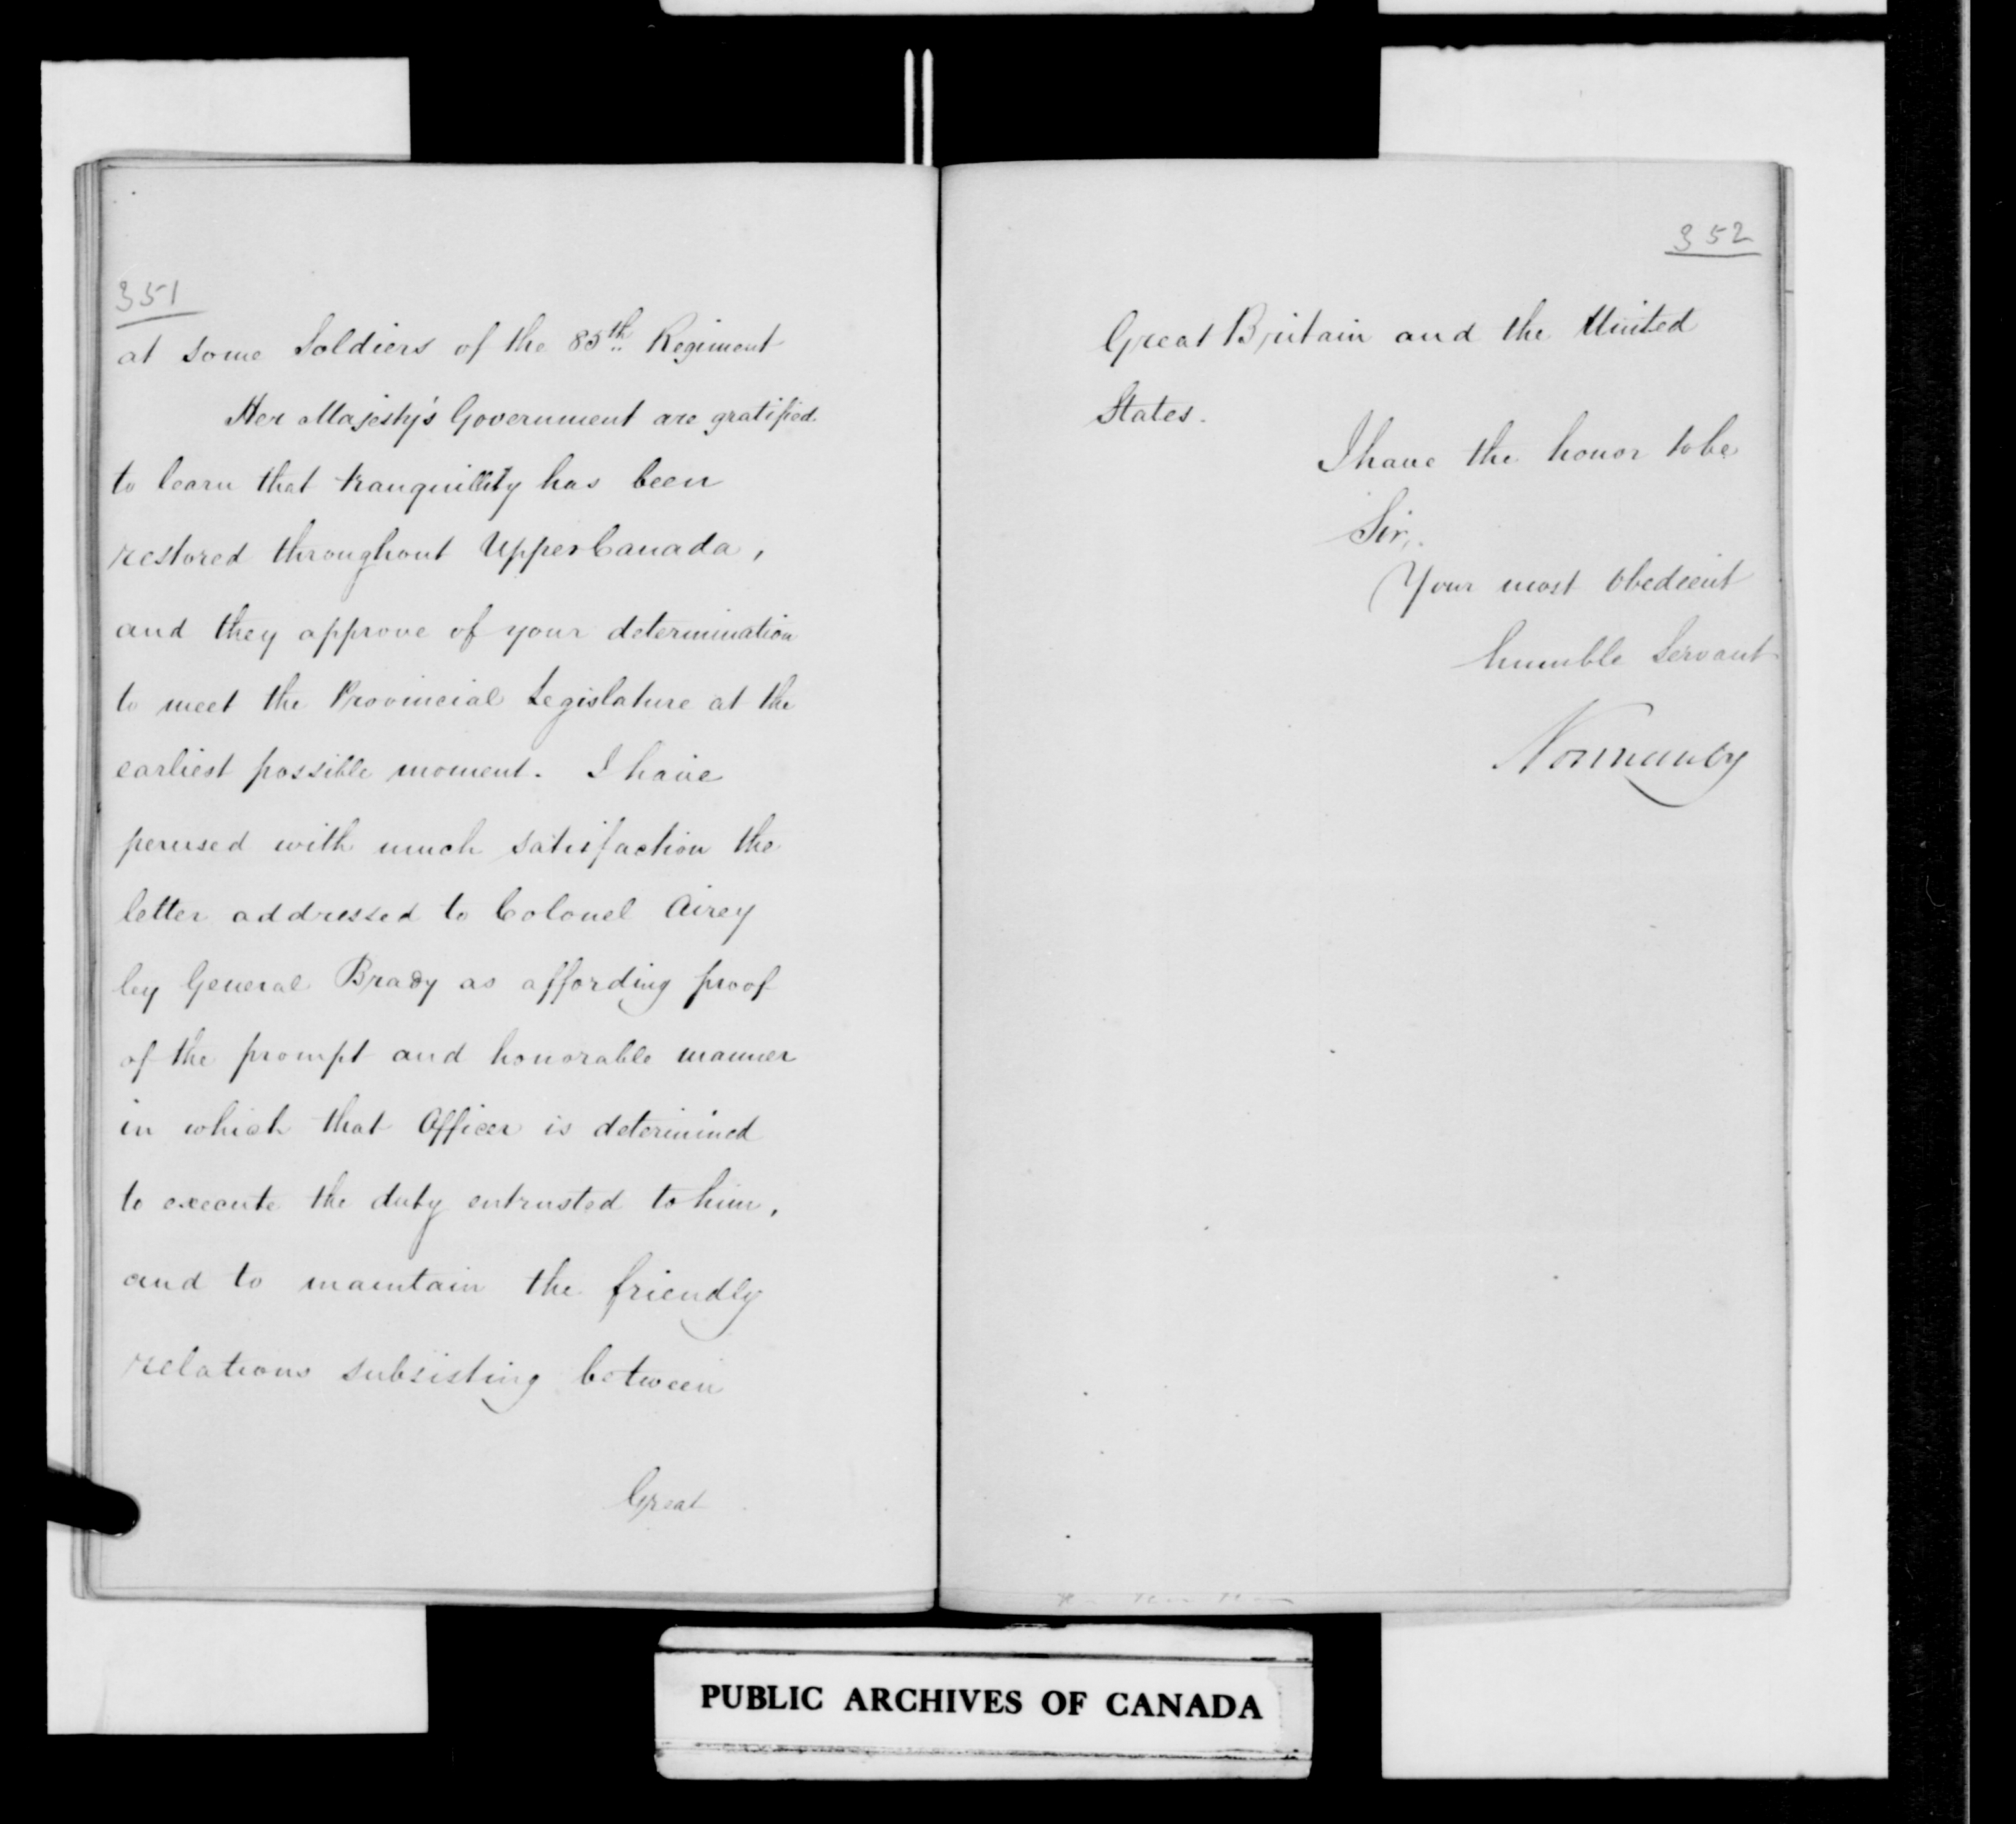 351
at some Soldiers of the 85th Regiment
Her Majesty's Government are gratified
to learn that tranquillity has been
restored throughout Upper Canada,
and they approve of your determination
to meet the Provincial Legislature at the
earliest possible moment. I have
perused with much satisfaction the
letter addressed to Colonel Airey
by General Brady as affording proof
of the prompt and honorable manner
in which that Officer is determined
to execute the duty entrusted to him,
and to maintain the friendly
relations subsisting between
Great
352
Great Britain and the United
States.
I have the honor to be
Sir,
Your most obedient
humble Servant
Normanby
PUBLIC ARCHIVES OF CANADA